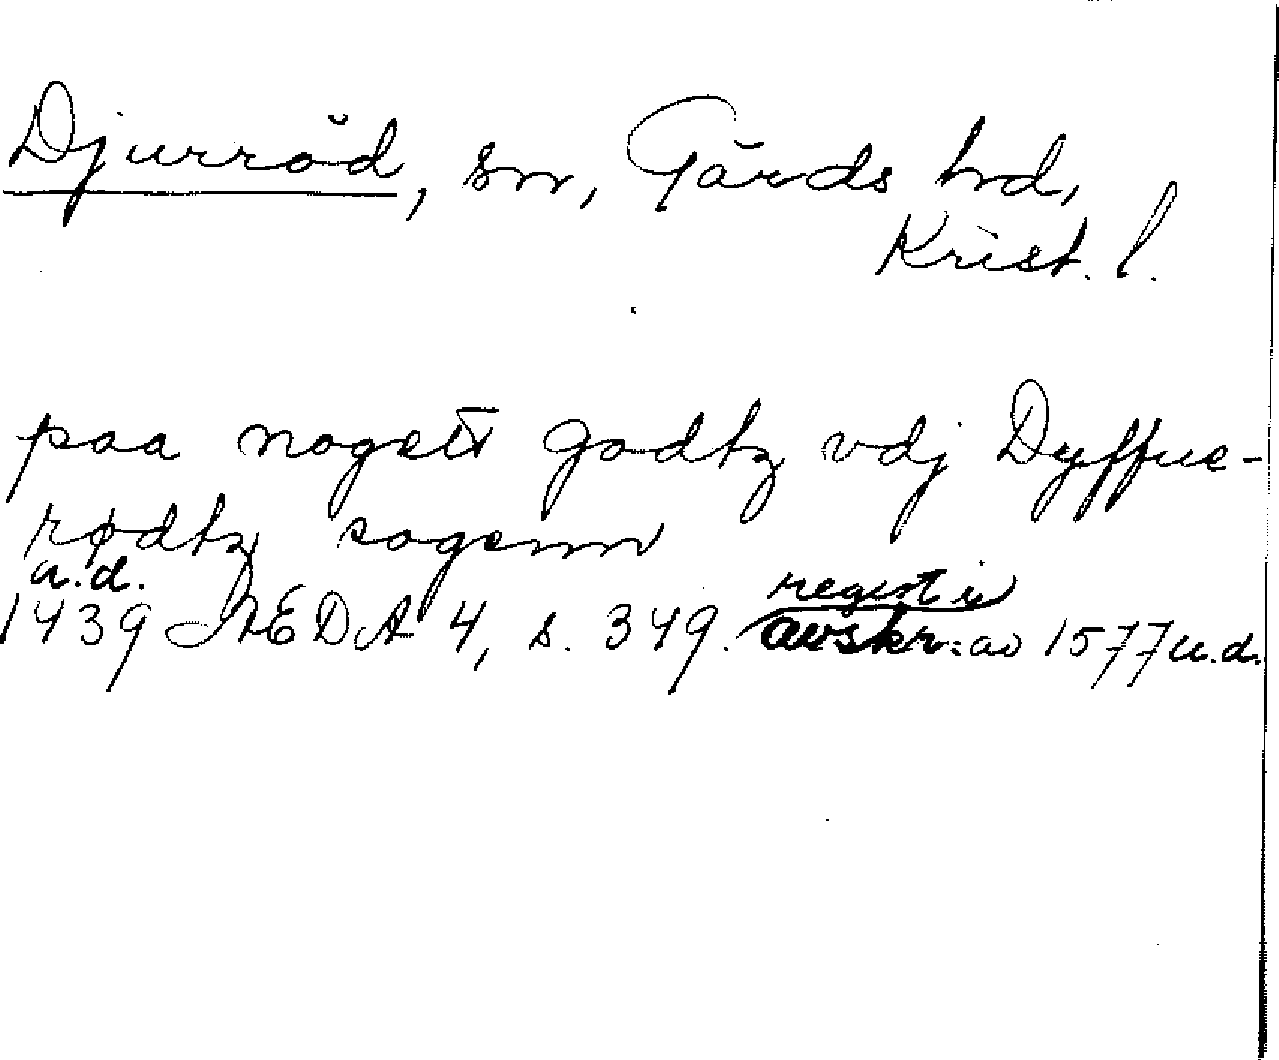 Djurröd, sn, Gärds hd,
Krist. l.
paa nogett godtz vdj Dyffue-
rødtz sogenn
a.d.
regest i
1439 ÆDA 4, s. 349. avskr. av 1577 u.d.